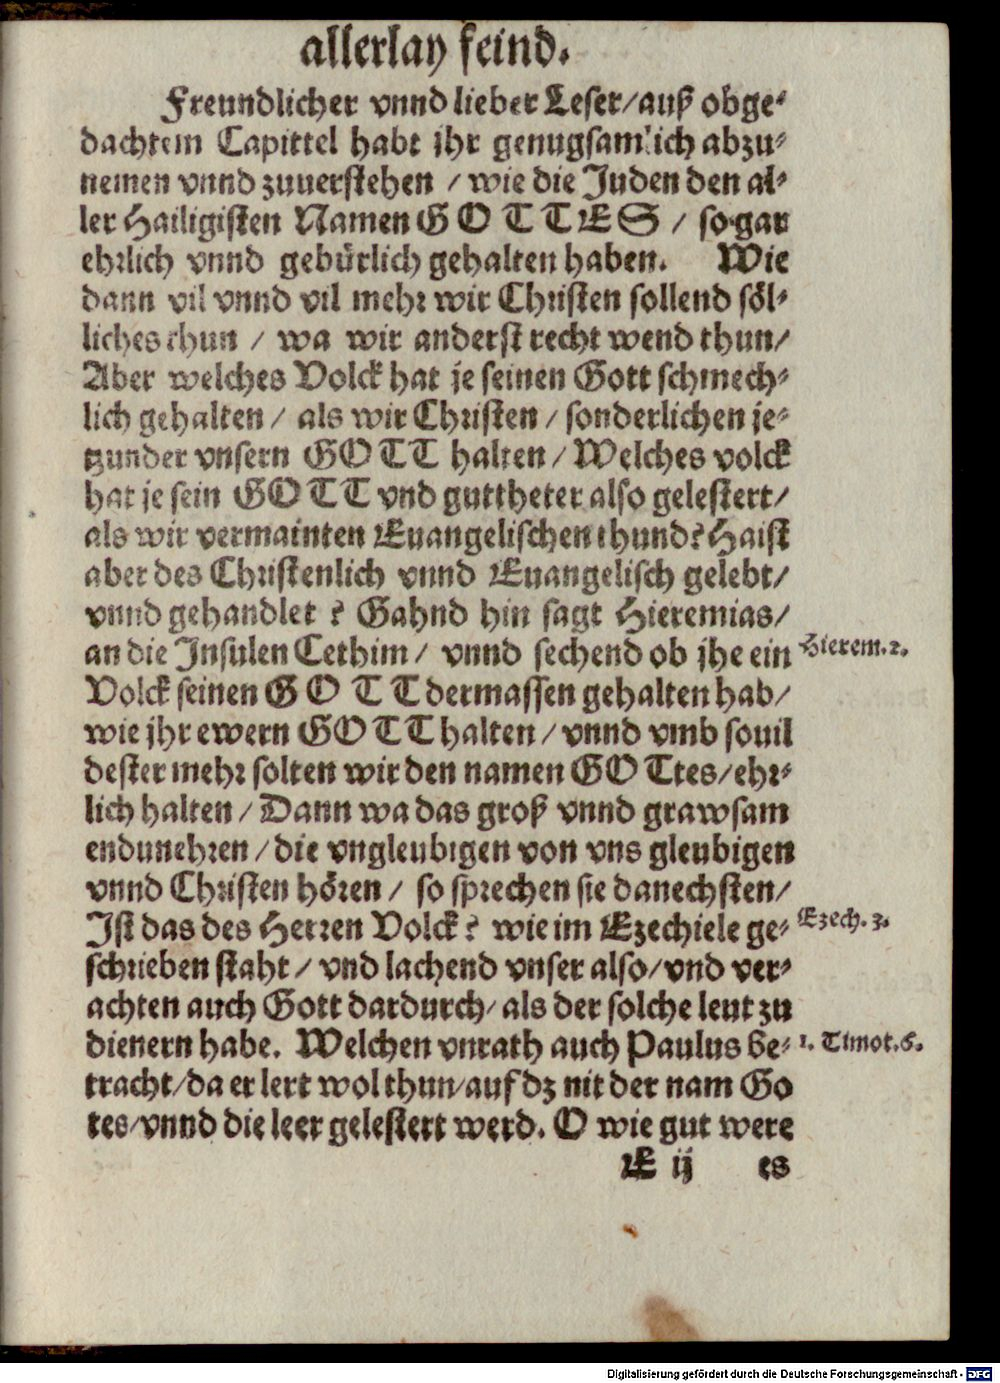 allerlay feind.
Freundlicher vnnd lieber Leser/auß obge-
dachtem Capittel habt jhr genugsamlich abzu-
nemen vnnd zuuerstehen / wie die Juden den al-
ler Hailigisten Namen GOTTES / so gar
ehrlich vnnd gebürlich gehalten haben. Wie
dann vil vnnd vil mehr wir Christen sollend söl-
liches thun / wa wir anderst recht wend thun/
Aber welches Volck hat je seinen Gott schmech-
lich gehalten / als wir Christen / sonderlichen je-
tzunder vnsern GOTT halten / Welches volck
hat je sein GOTT vnd guttheter also gelestert/
als wir vermainten Euangelischen thund? Haist
aber des Christenlich vnnd Euangelisch gelebt/
vnnd gehandlet ? Gahnd hin sagt Hieremias/
an die Insulen Cethim / vnnd sechend ob jhe ein
Hierem. 2.
Volck seinen GOTT dermassen gehalten hab/
wie jhr ewern GOTT halten / vnnd vmb souil
dester mehr solten wir den namen GOTtes/ehr-
lich halten / Dann wa das groß vnnd grawsam
endunehren / die vngleubigen von vns gleubigen
vnnd Christen hören / so sprechen sie danechsten/
Ist das des Herren Volck? wie im Ezechiele ge-
Ezech. 3.
schrieben staht / vnd lachend vnser also/vnd ver-
achten auch Gott dardurch/als der solche leut zu
dienern habe. Welchen vnrath auch Paulus be-
1. Timot. 6.
tracht/da er lert wol thun/auf dz nit der nam Go
tes/vnnd die leer gelestert werd. O wie gut were
E ij es
Digitalisierung gefördert durch die Deutsche Forschungsgemeinschaft - DFG